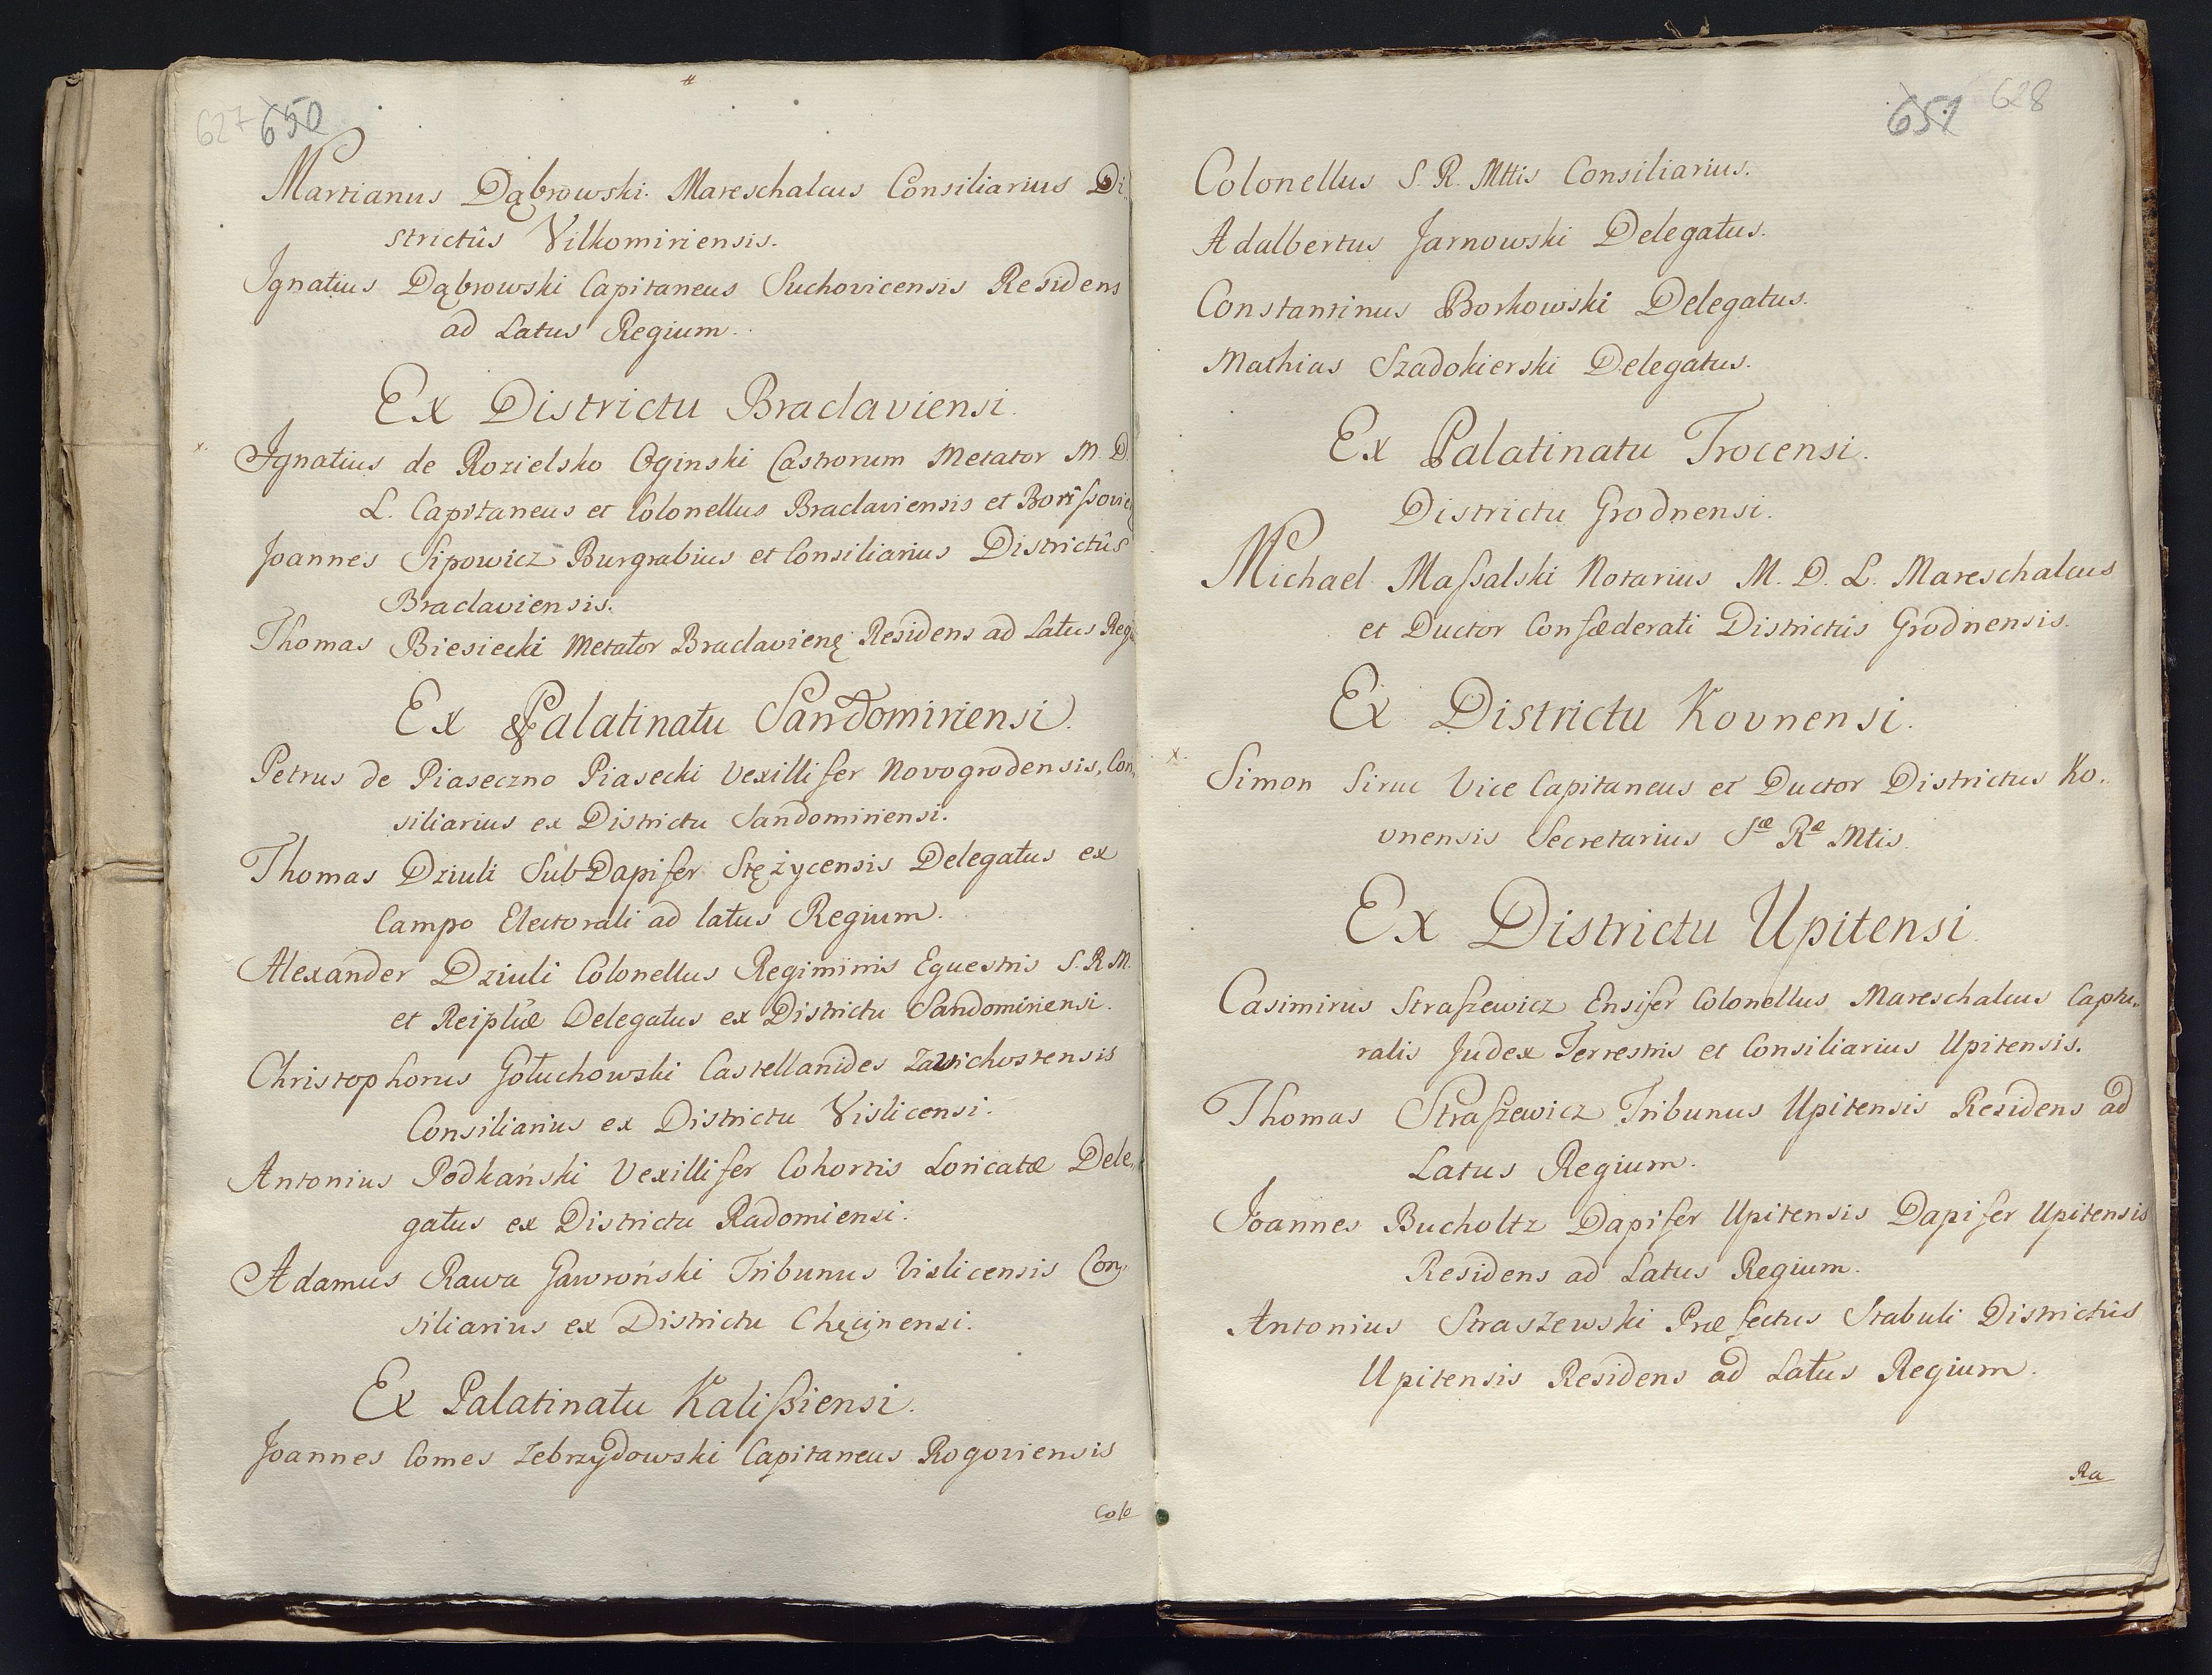 627 650
Martianus Dąbrowski Mareschalcus Consiliarius Di
strictûs Vilkomiriensis.
Ignatius Dąbrowski Capitaneus Suchovicensis Residens
ad Latus Regium.
Ex Districtu Braclaviensi.
x. Ignatius de Kozielsko Oginski Castrorum Metator M. D.
L. Capitaneus et Colonellus Braclaviensis et
Joannes Sipowicz Burgrabius et Consiliarius Districtûs
Braclaviensis.
Thomas Biesiecki Metator Residens ad Latus
Ex Palatinatu Sandomiriensi.
Petrus de Piaseczno Piasecki Vexillifer Novogrodensis, Con,,
siliarius ex Districtu Sandomiriensi.
Thomas Dziuli SubDapifer Stężycensis Delegatus ex
Campo Electorali ad latus Regium.
Alexander Dziuli Colonellus Regiminis Equestris S. R. M.
et Reiplũæ Delegatus ex Districtu Sandomiriensi.
Christophorus Gołuchowski Castellanides Zawichostensis
Consiliarius ex Districtu Vislicensi.
Antonius Podkański Vexillifer Cohortis Loricatæ Dele,,
gatus ex Districtu Radomiensi.
Adamus Rawa Gawroński Tribunus Vislicensis Con,,
siliarius ex Districtu Chęcinensi.
Ex Palatinatu Kalissiensi.
Joannes Comes Zebrzydowski Capitaneus Rogoziensis
Colo
651 628
Colonellus S. R. Mttis Consiliarius.
Adalbertus Jarnowski Delegatus.
Constantinus Borkowski Delegatus.
Mathias Szadokierski Delegatus.
Ex Palatinatu Trocensi.
Districtu Grodnensi.
Michael Massalski Notarius M. D. L. Mareschalcus
et Ductor Confæderati Districtûs Grodnensis.
Ex Districtu Kovnensi.
x. Simon Siruc Vice Capitaneus et Ductor Districtus Ko,,
vnensis Secretarius Sæ Ræ Mtis.
Ex Districtu Upitensi
Casimirus Straszewicz Ensifer Colonellus Mareschalcus Captu,,
ralis Judex Terrestris et Consiliarius Upitensis.
Thomas Straszewicz Tribunus Upitensis Residens ad
Latus Regium.
Joannes Bucholtz Dapifer Upitensis Dapifer Upitensis
Residens ad Latus Regium.
Antonius Straszewski Præfectus Stabuli Districtûs
Upitensis Residens ad Latus Regium.
Ra